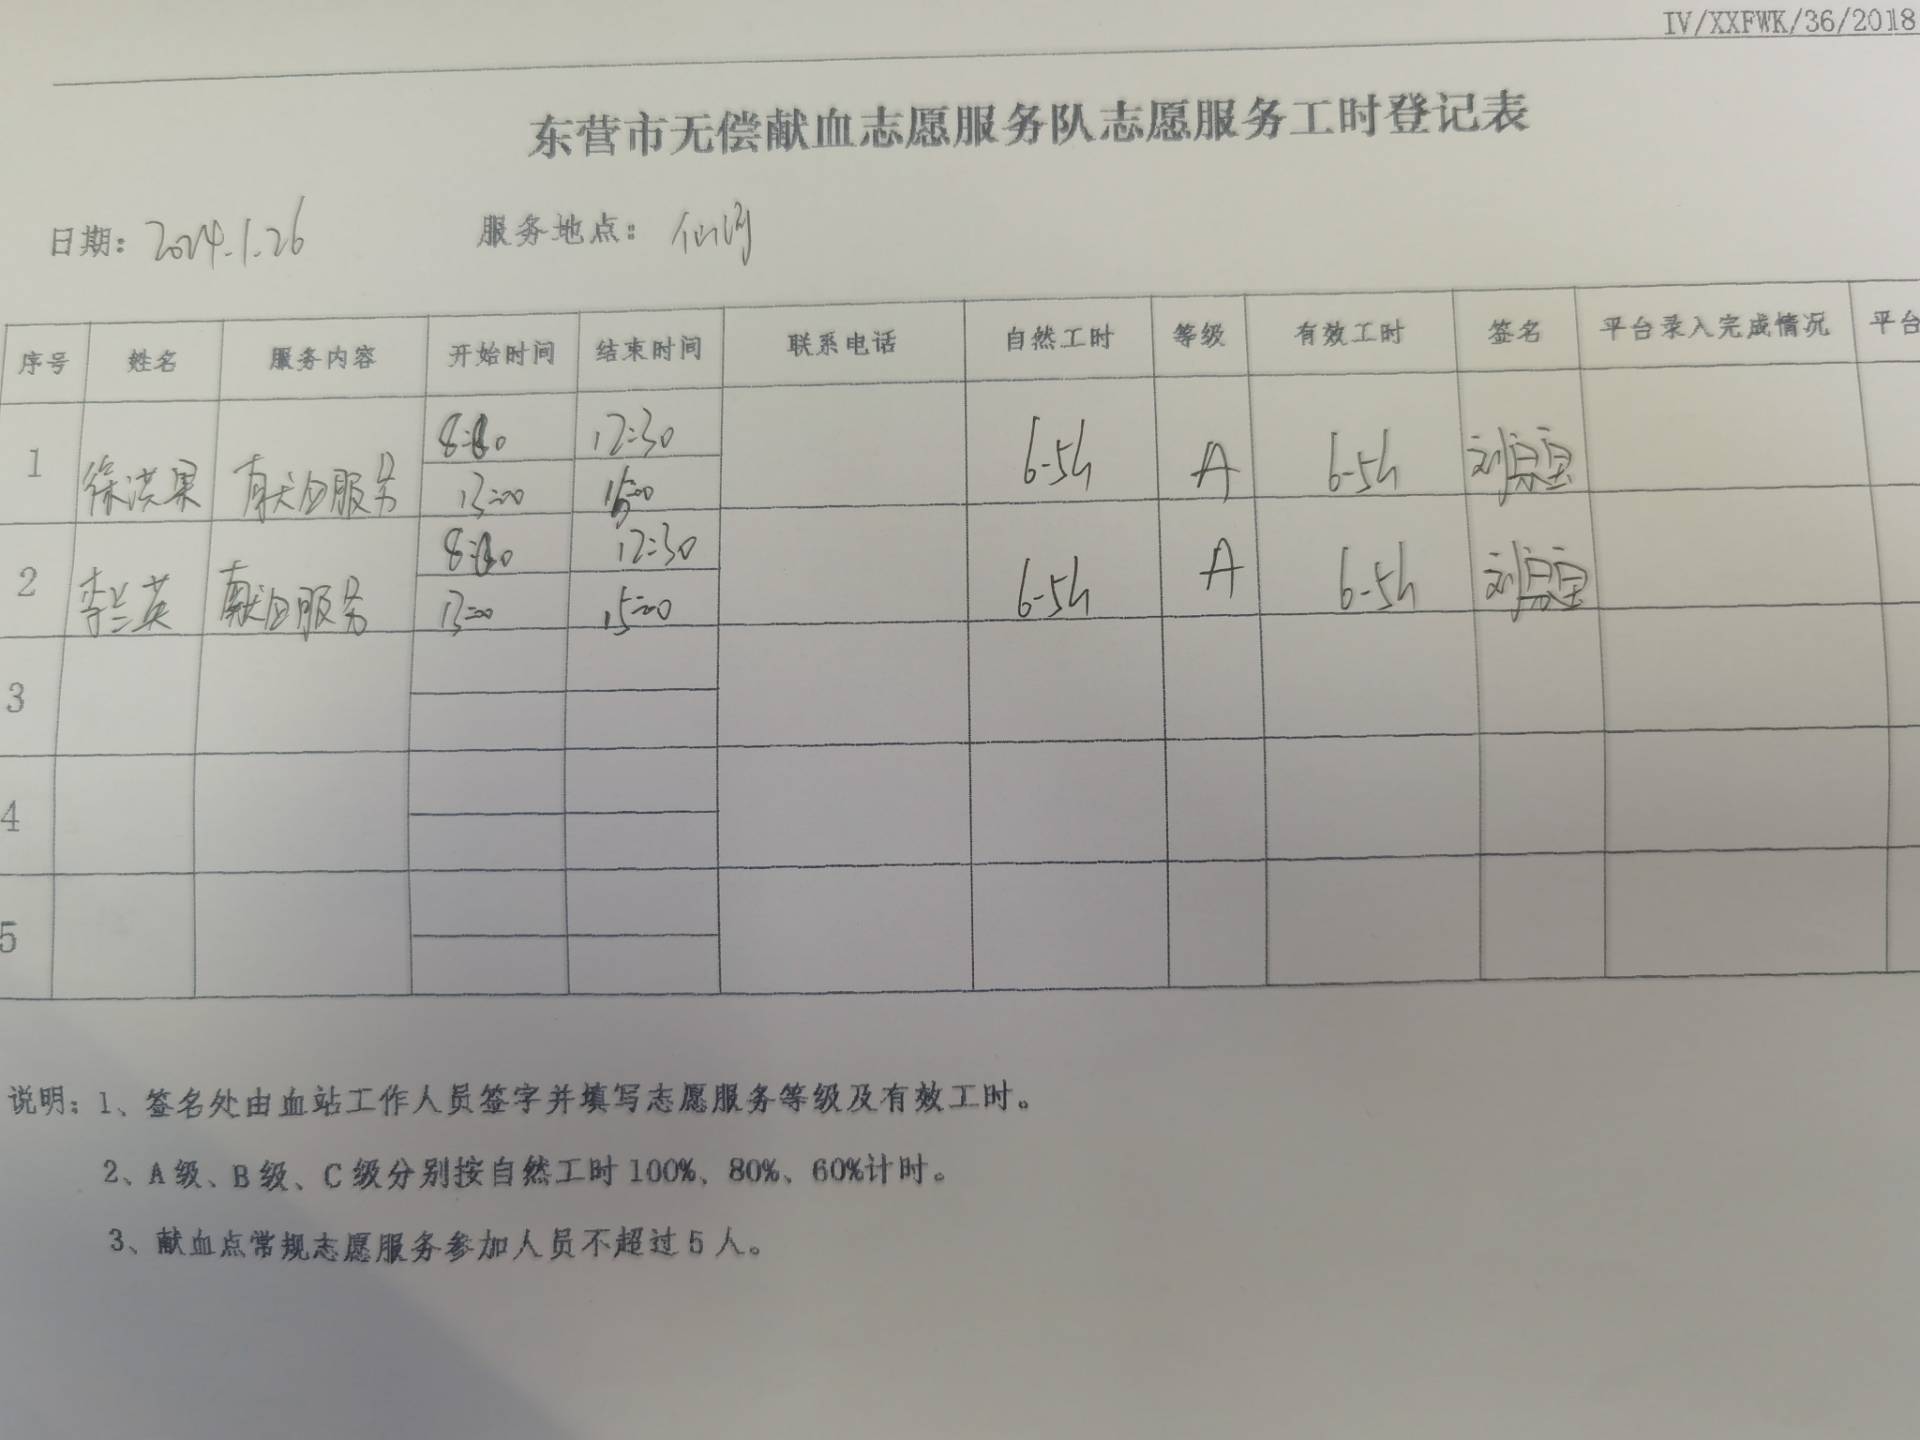 IV/XXFWK/36/2018
东营市无偿献血志愿服务队志愿服务工时登记表
日期: 2024.1.26 服务地点: 仙河
序号 姓名 服务内容 开始时间 结束时间 联系电话 自然工时 等级 有效工时 签名 平台录入完成情况 平台
1 徐洪果 献血服务 12:30 6.5h A 6.5h
13:00 15:00
2 李兰英 献血服务 12:30 6.5h A 6.5h
13:00 15:00
3
4
5
说明: 1、签名处由血站工作人员签字并填写志愿服务等级及有效工时。
2、A级、B级、C级分别按自然工时100%、80%、60%计时。
3、献血点常规志愿服务参加人员不超过5人。